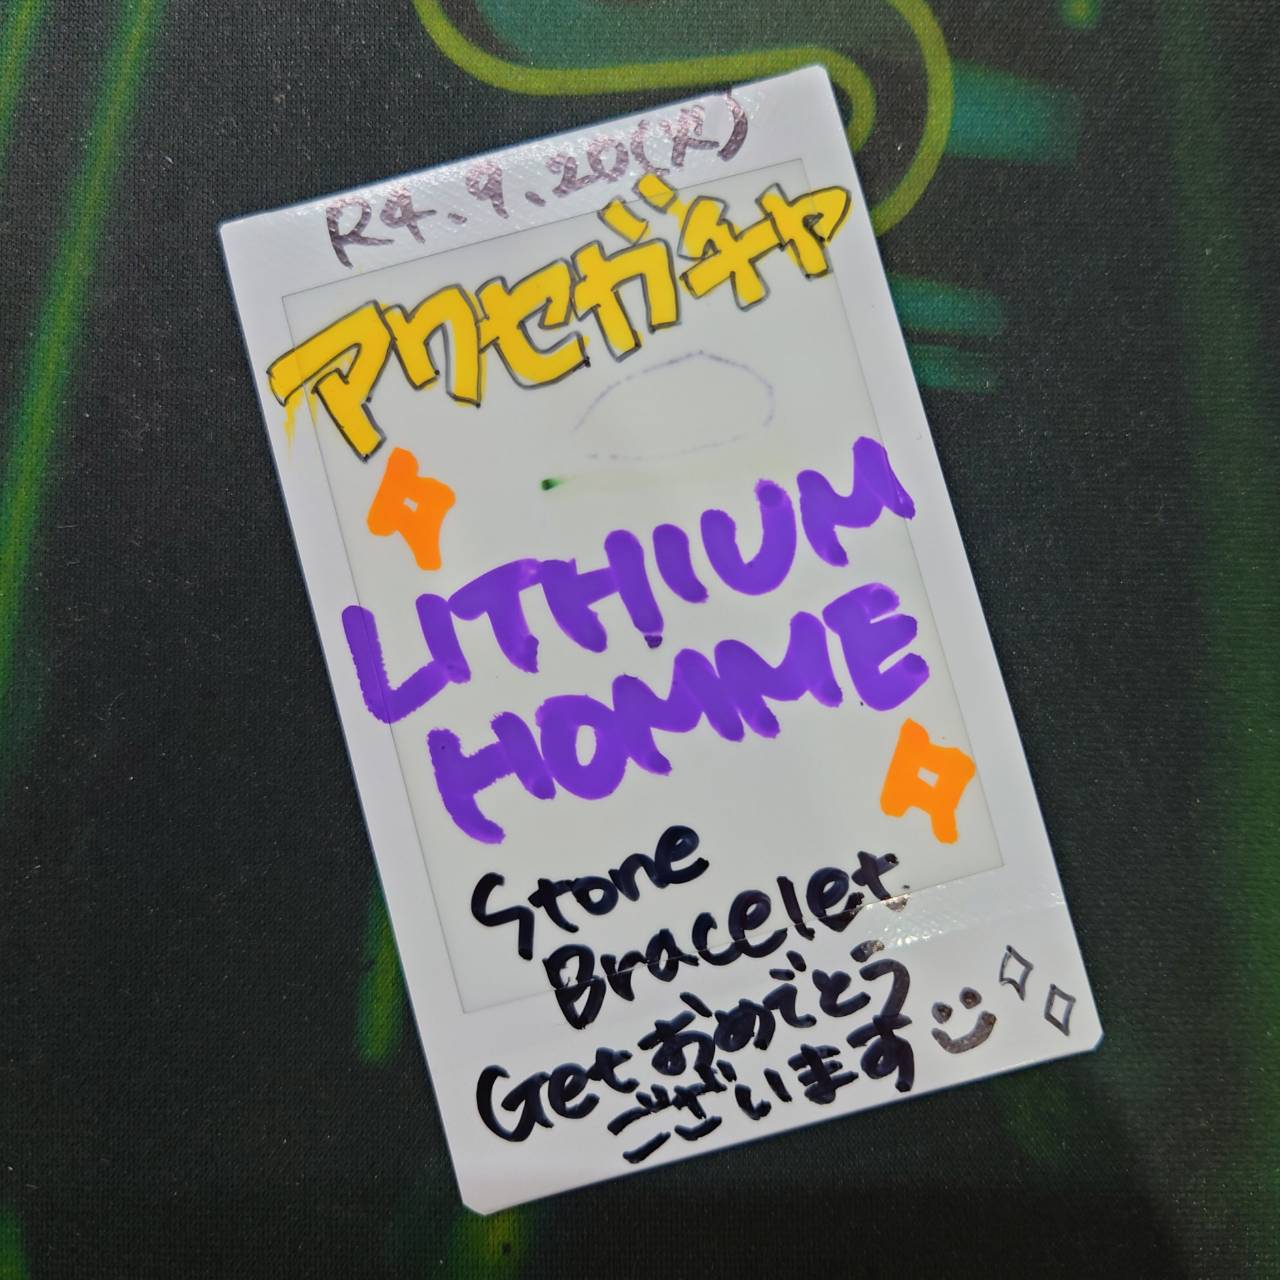 R4.9.20(火)
アクセガチャ
LITHIUM
HOMME
Stone
Bracelet
Getおめでとう
ございます